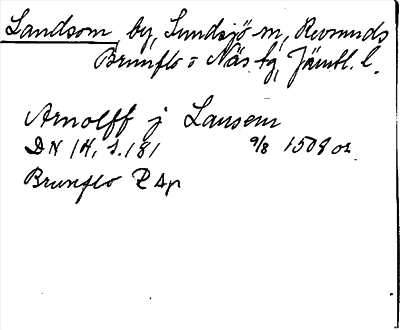 Landsom, by, Sundsjö sn, Revsunds
Brunflo o Näs tg, Jämtl. l.
Arnolff j Lansem
DN 14, s. 181 9/8 1508 or.
Brunflo P Ap